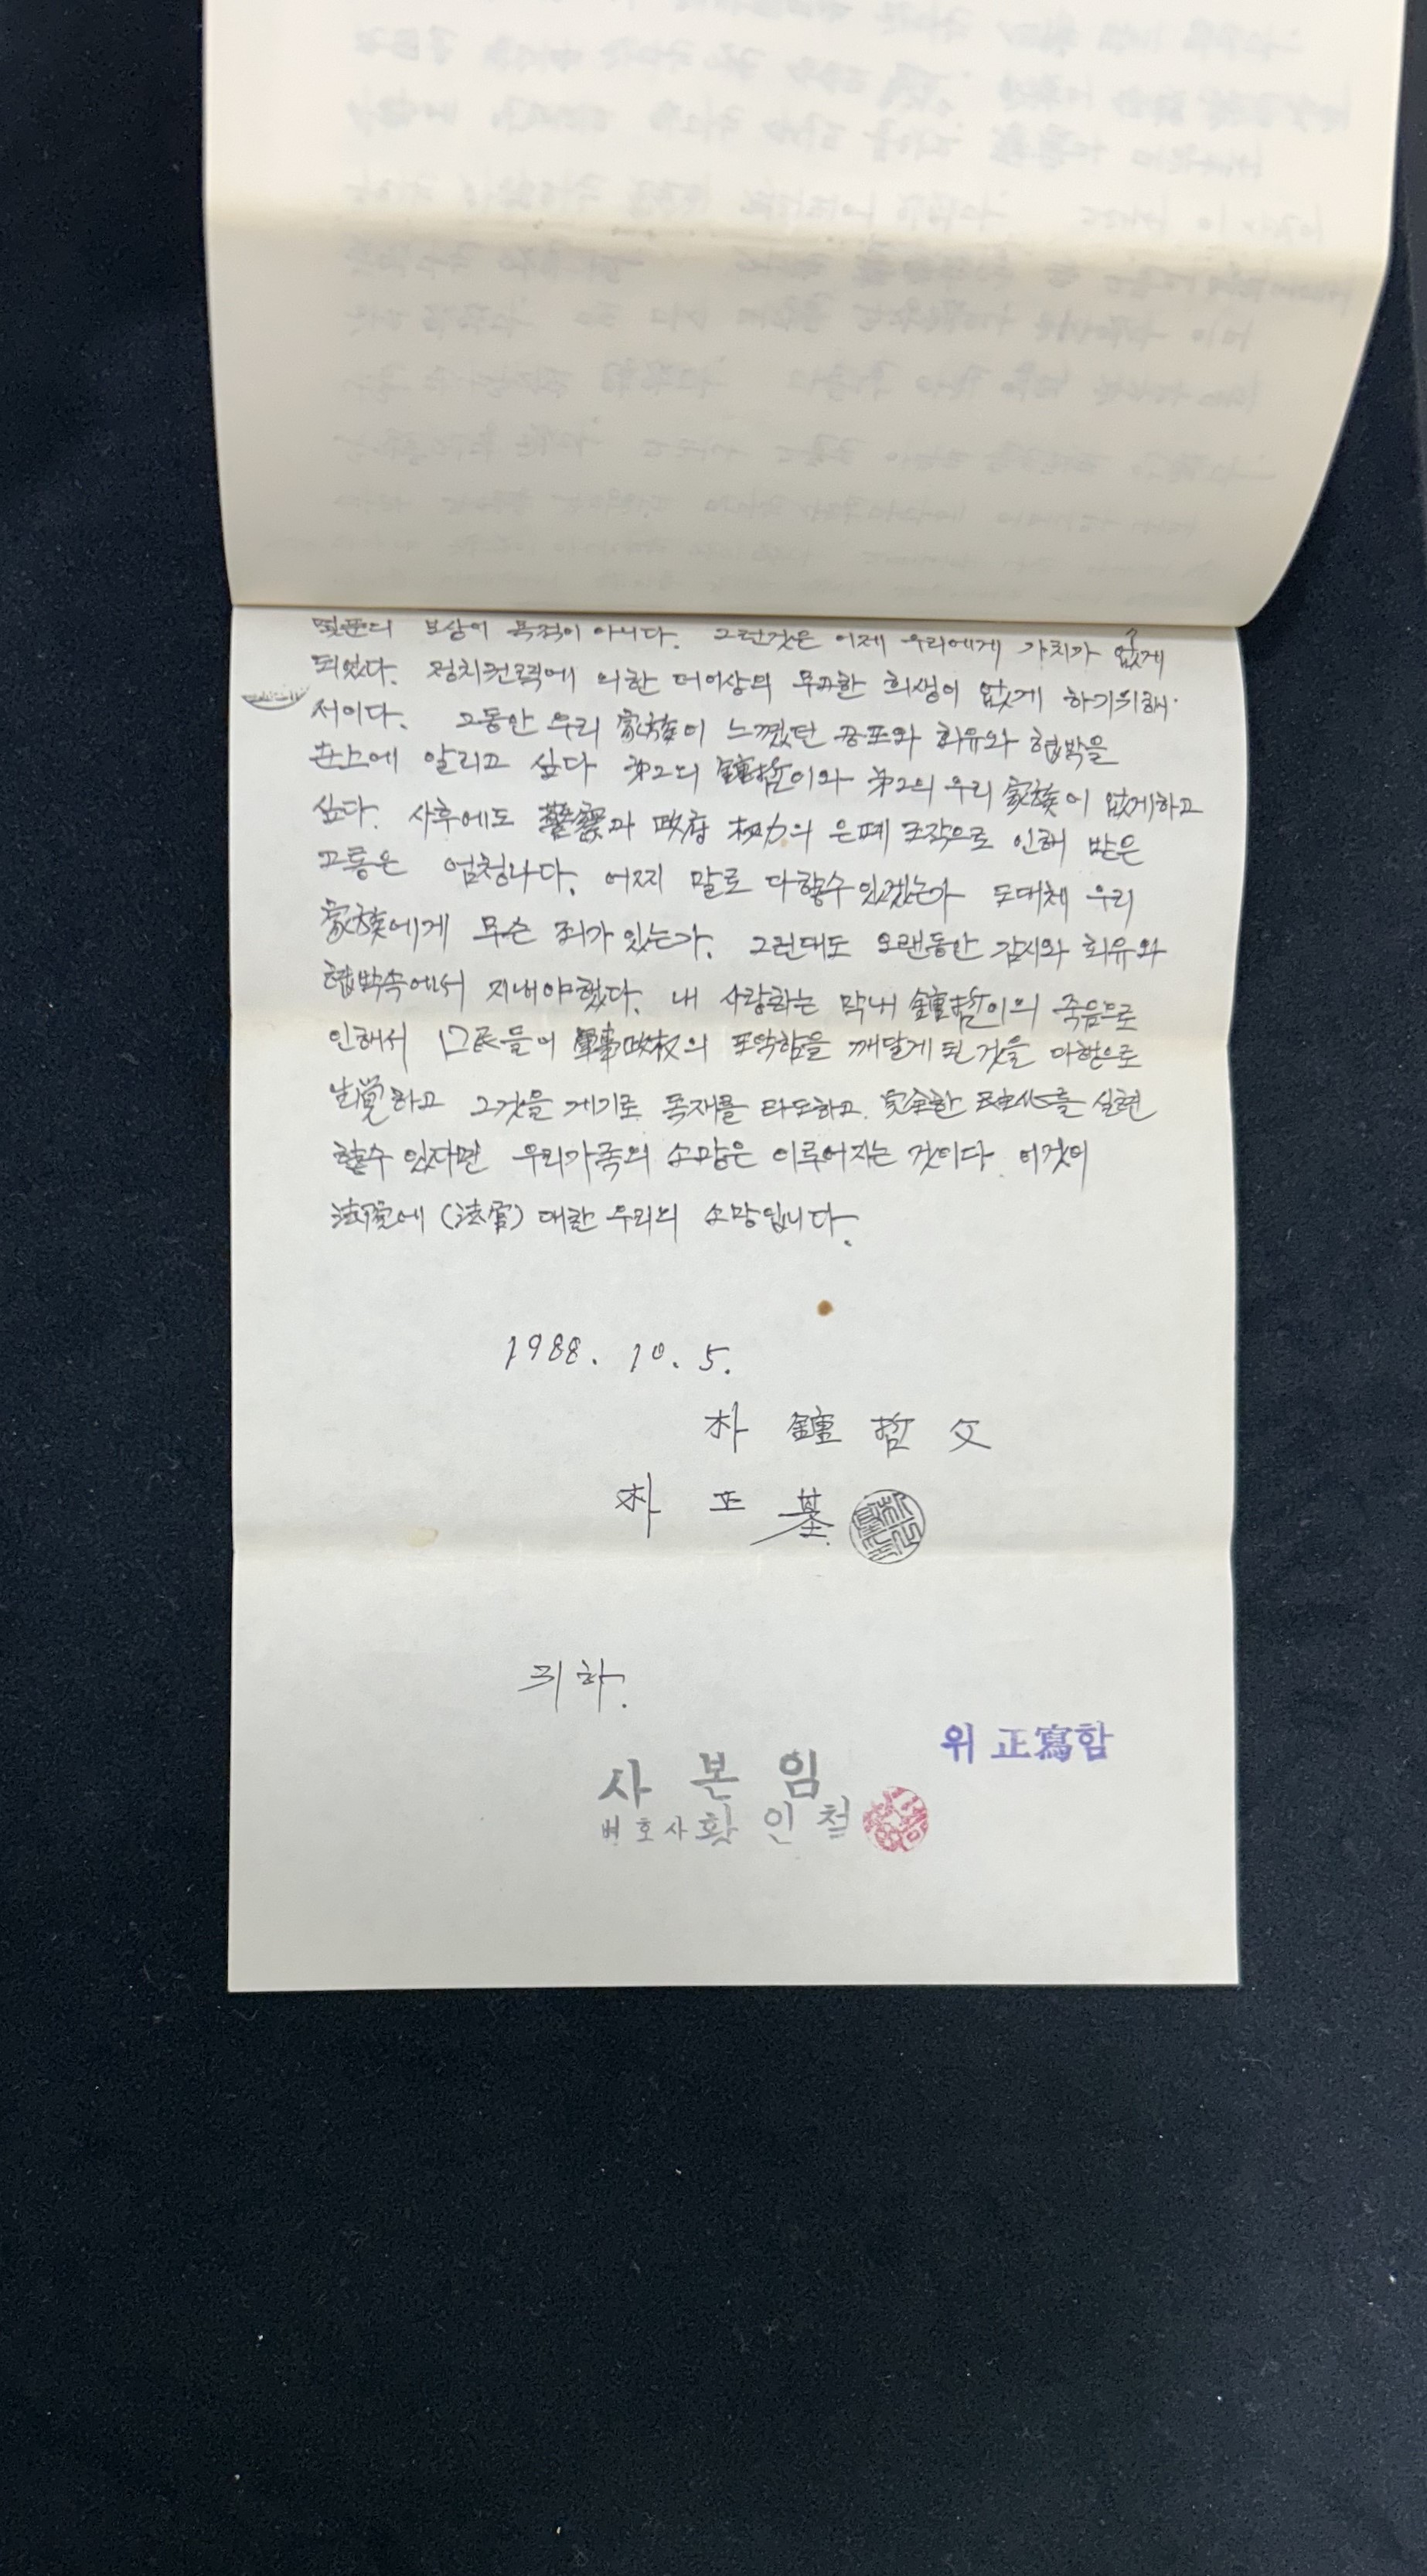 몇푼의 보상이 목적이 아니다. 그런것은 이제 우리에게 가치가 없게
되었다. 정치권력에 의한 더이상의 무고한 희생이 없게 하기위해
서이다. 그동안 우리 家族이 느꼈던 공포와 회유와 협박을
世上에 알리고 싶다 第2의 鍾哲이와 第2의 우리 家族이 없게하고
싶다. 사후에도 警察과 政府 权力의 은폐 조작으로 인해 받은
고통은 엄청나다. 어찌 말로 다할수 있겠는가 도대체 우리
家族에게 무슨 죄가 있는가. 그런대도 오랜동안 감시와 회유와
협박속에서 지내야했다. 내 사랑하는 막내 鍾哲이의 죽음으로
인해서 民들이 軍事政权의 포악함을 깨달게 된 것을 다행으로
生覚하고 그것을 계기로 독재를 타도하고 完全한 民主化를 실현
할수 있다면 우리가족의 소망은 이루어지는 것이다. 이것이
法院에 (法官) 대한 우리의 소망입니다.
1988. 10. 5.
朴 鍾 哲 父
朴 正 基
귀하.
위 正寫함
사 본 임
변호사 황 인 철